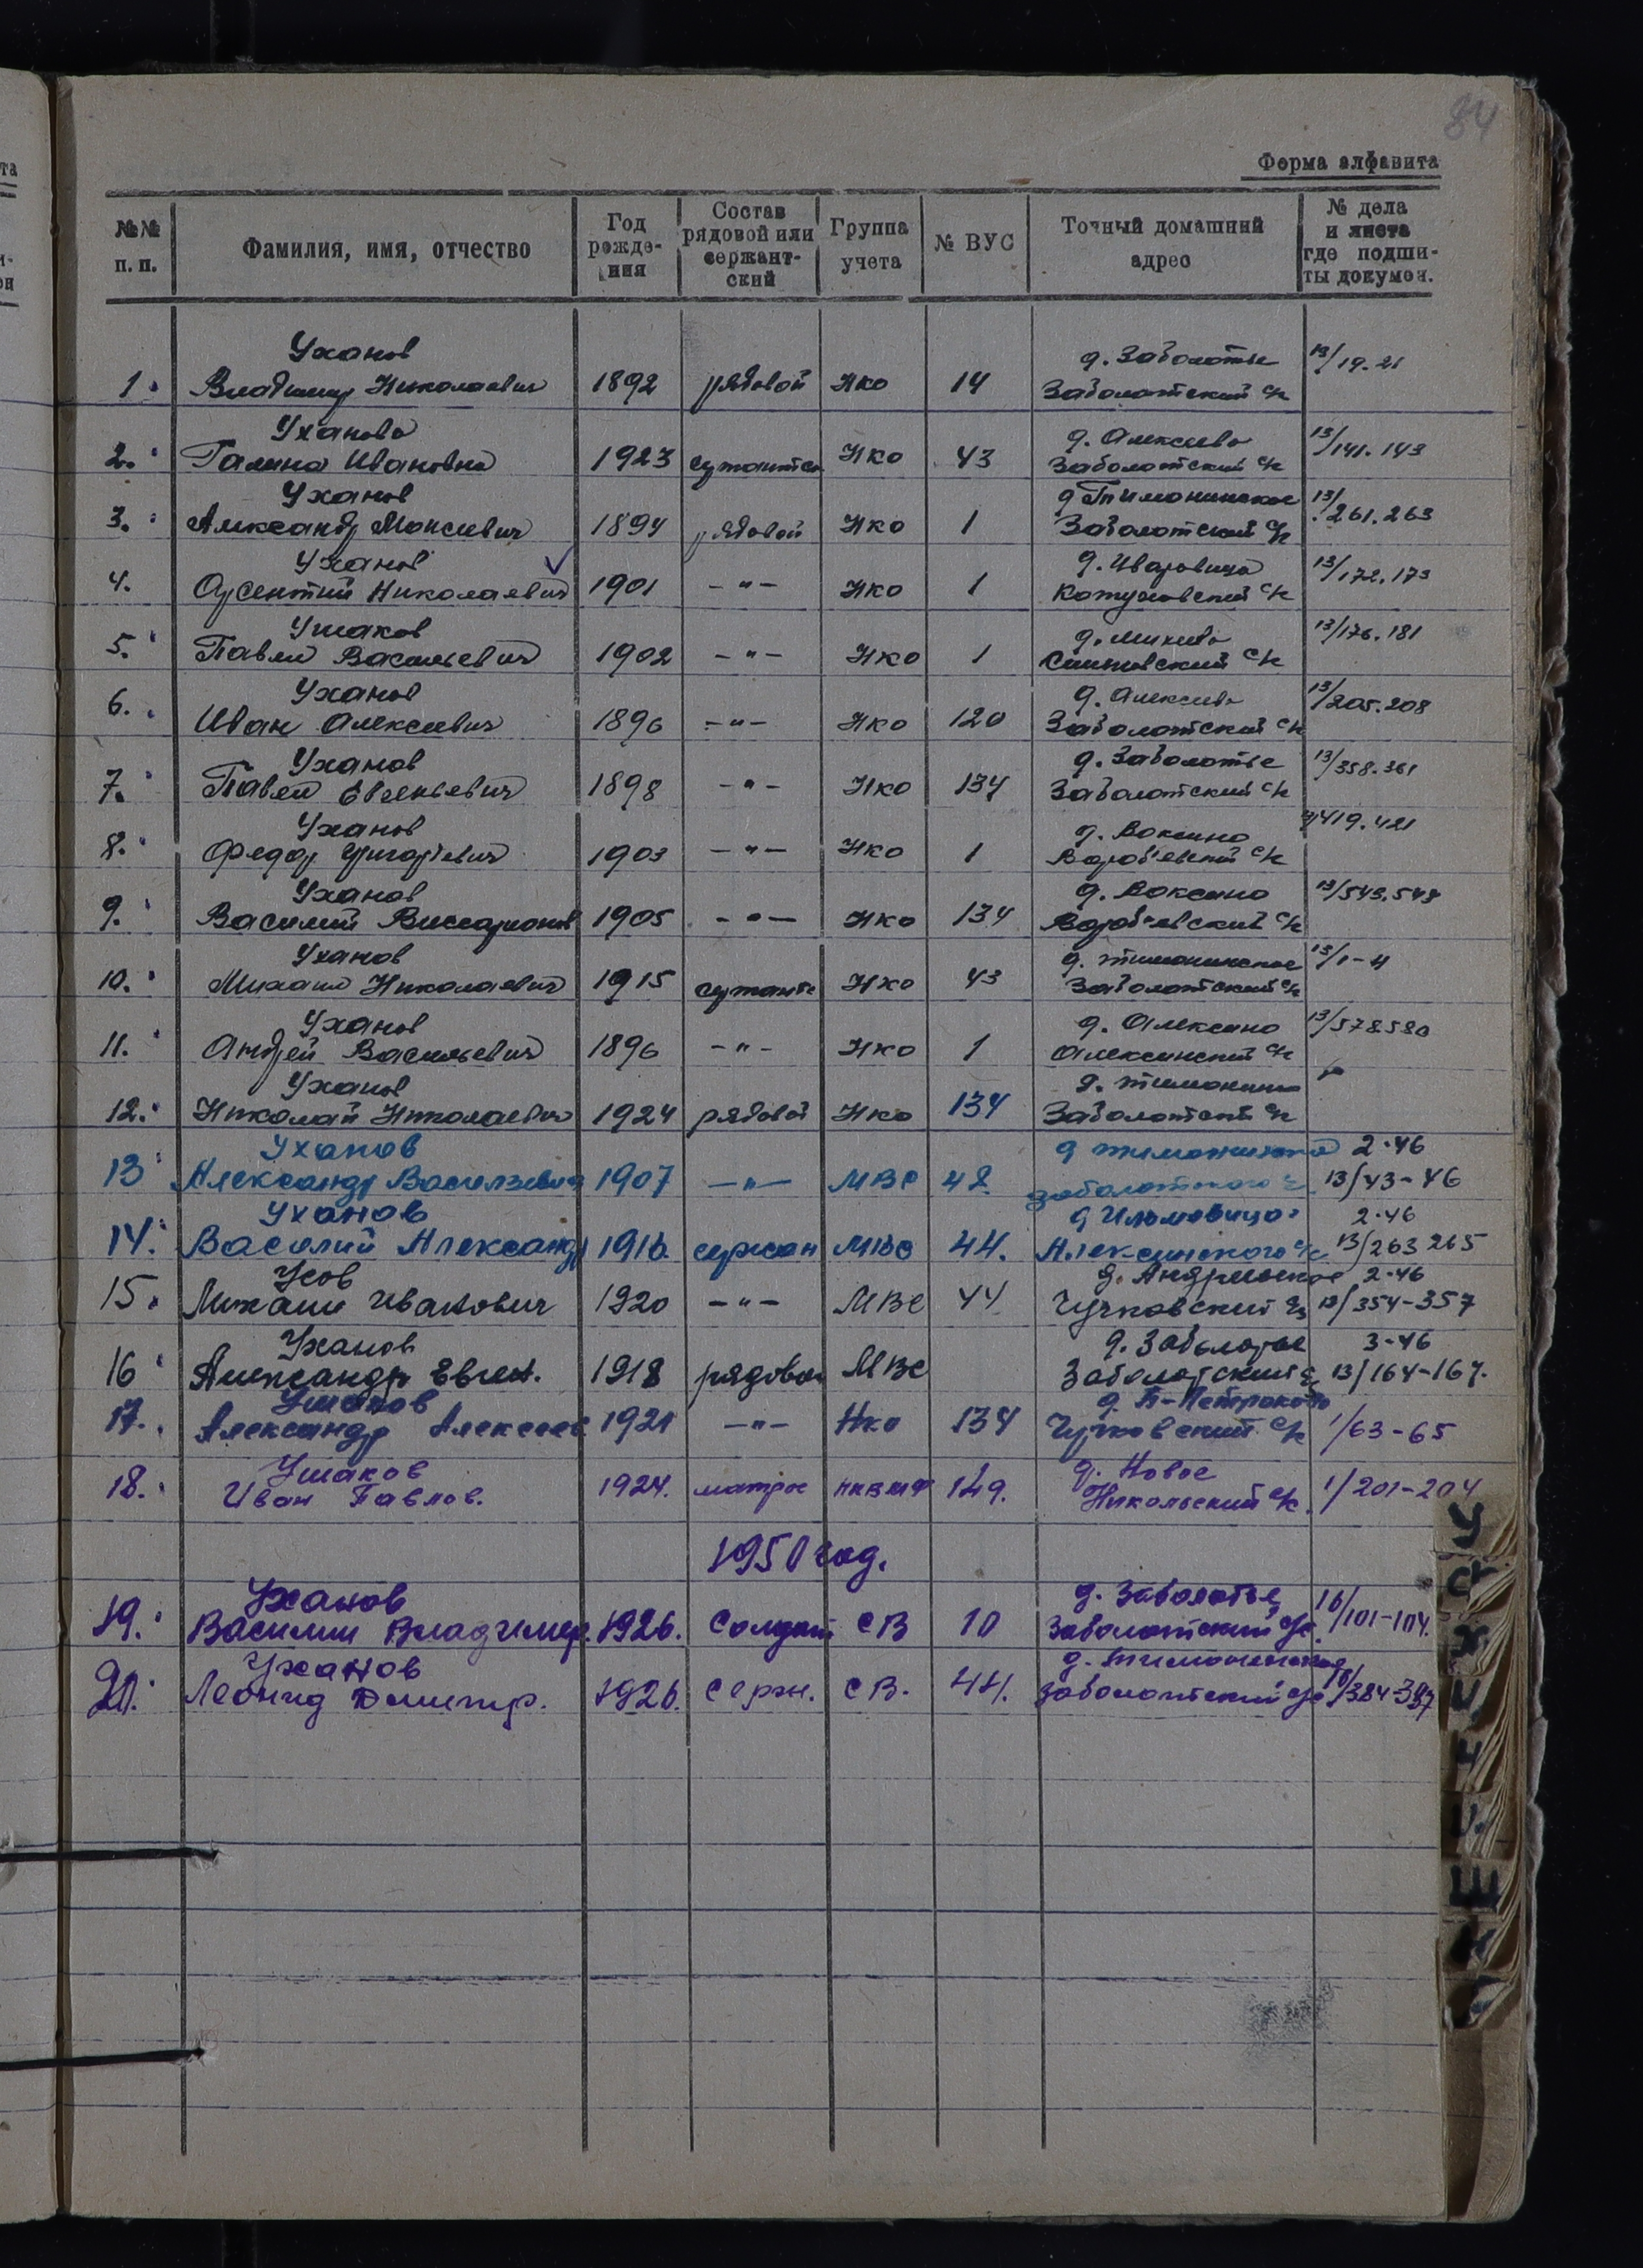 84
Форма алфавита
№№ п. п. Фамилия, имя, отчество Год рождения Состав рядовой или сержантский Группа учета № ВУС Точный домашний адрес № дела и листа где подшиты докумен.
Уханов д. Заболотье 13/19.21
1. Владимир Николаевич 1892 рядовой Нко 14 Заболотский с/с
Уханова д. Алексеево 13/141.143
2. Галина Ивановна 1923 Нко 43 Заболотский с/с
Уханов д Тимонинское 13/261.263
3. Александр Моисеевич 1894 рядовой Нко 1 Заболотский с/с
Уханов д. 13/172.173
4. Арсентий Николаевич 1901 -"- Нко 1 с/с
Ушаков д. Михеево 13/176.181
5. Павел Васильевич 1902 -"- Нко 1 с/с
Уханов д. Алексеево 13/205.208
6. Иван Алексеевич 1896 -"- Нко 120 Заболотский с/с
Уханов д. Заболотье 13/358.361
7. Павел Евгеньевич 1898 -"- Нко 134 Заболотский с/с
Уханов д. Воксино 419.421
8. Федор Григорьевич 1903 -"- Нко 1 Вороб'евский с/с
Уханов д. Воксино 13/543.548
9. Василий Виссарионов 1905 -"- Нко 134 Вороб'евский с/с
Уханов д. Тимонинское 13/1-4
10. Михаил Николаевич 1915 Нко 43 Заболотский с/с
Уханов д. Алексино 13/578.580
11. Андрей Васильевич 1896 -"- Нко 1 Алексинский с/с
Уханов д. Тимонино
12. Николай Николаевич 1924 рядовой Нко 134 Заболотский с/с
Уханов д 2.46
13 Александр Васильевич 1907 -"- МВС 48 Заболотского с 13/43-46
Уханов д Ильмовицо 2.46
14. Василий Александр 1916. сержан МВС 44. Алексинского с/с 13/263 265
Усов д. Андреевское 2.46
15. Михаил Иванович 1920 -"- МВС 44 Чучковский с/с 13/354-357
Уханов д. Заболотье 3-46
16 Александр Евген. 1918 рядовой МВС Заболотский с/с 13/164-167.
Ушаков д. Б-Петраково
17. Александр Алексеев 1921 -"- Нко 134 Чучковский с/с 1/63-65
Ушаков д. Новое
18. Иван Павлов. 1924. матрос НКВМФ 149. Никольский с/с. 1/201-204
1950 год.
Уханов д. Заболотье
19. Василий Владимир. 1926. Солдат СВ 10 Заболотский с/с. 16/101-104.
Уханов д.
20. Леонид Дмитр. 1926. Серж. СВ. 44. Заболотский с/с 16/384-387
У
Ф
Х
Ц
Ч
Ш